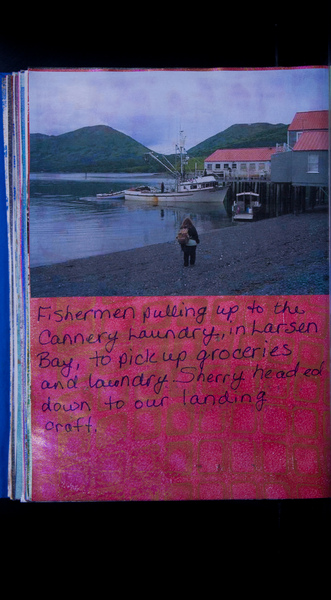 Fishermen pulling up to the
Cannery Laundry, in Larsen
Bay, to pick up groceries
and laundry. Sherry headed
down to our landing
craft.